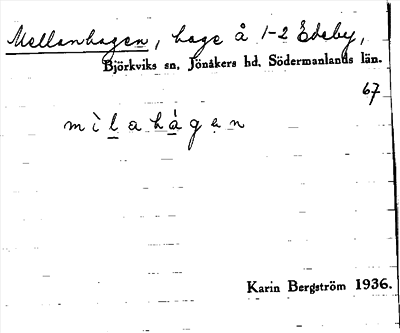 Mellanhagen, hage å 1-2 Edeby,
Björkviks sn, Jönåkers hd, Södermanlands län.
67
mìlahàgen
Karin Bergström 1936.